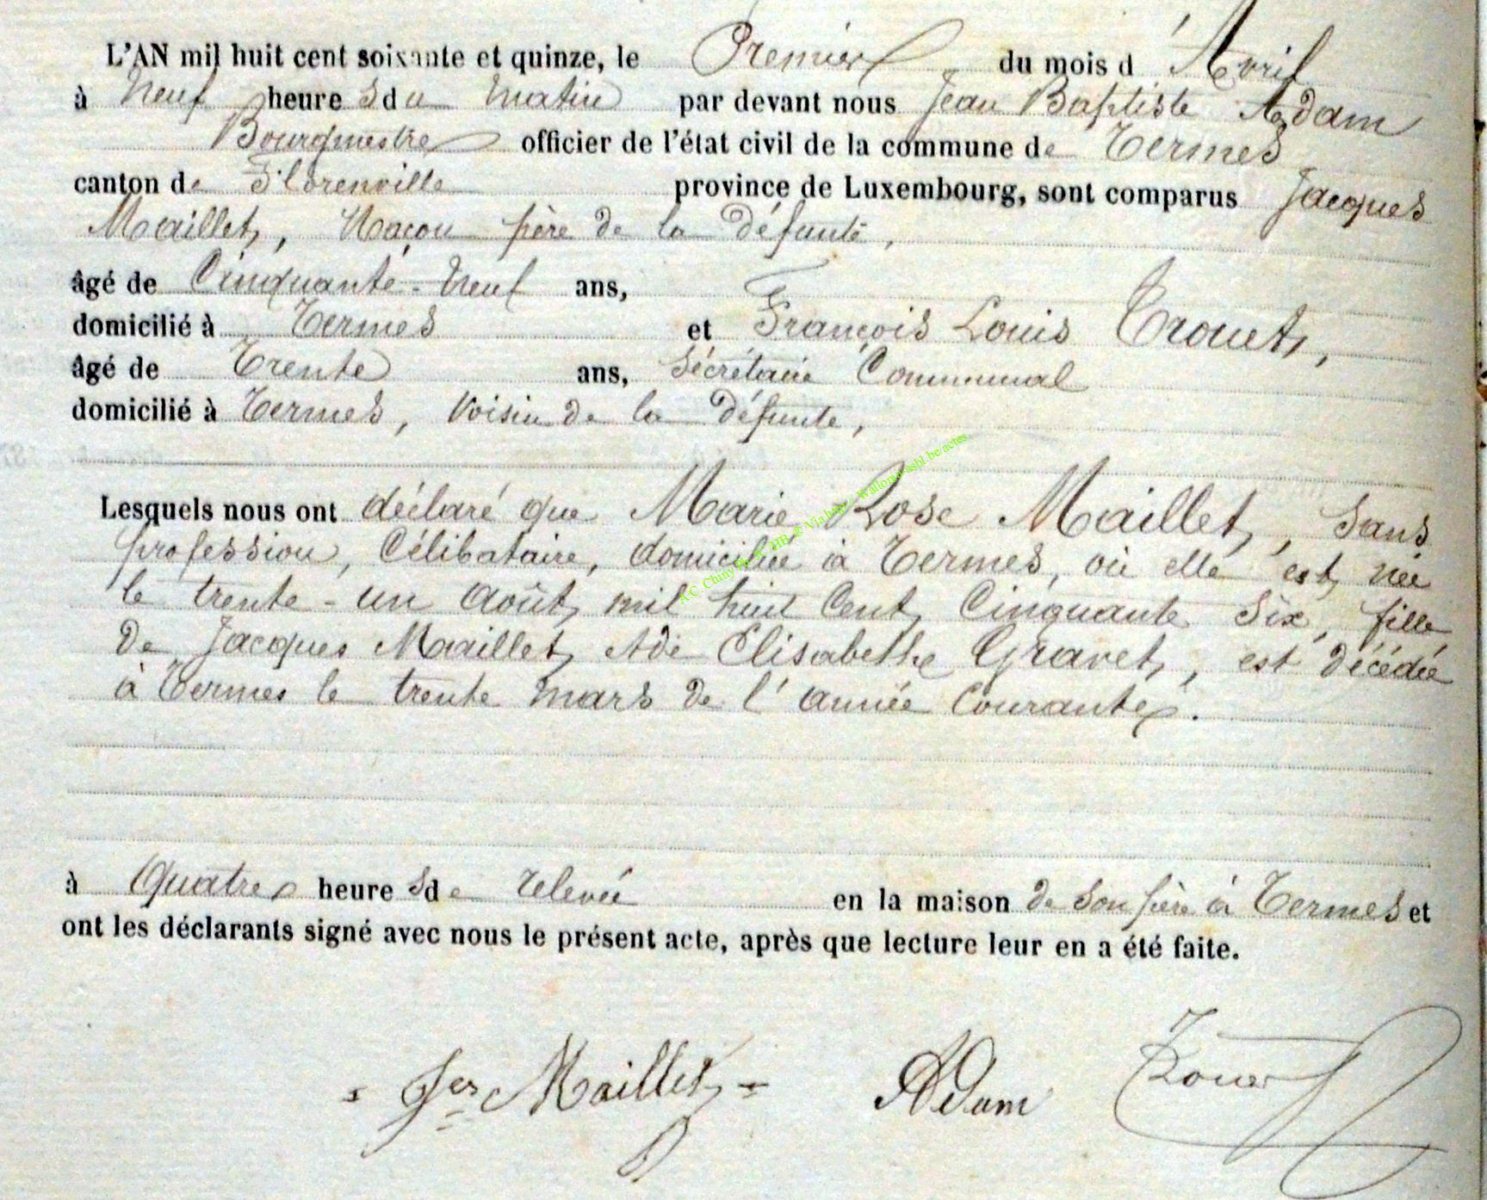 L'AN mil huit cent soixante et quinze, le Premier du mois d'Avril
à Neuf heures du matin par devant nous Jean Baptiste Adam
Bourgmestre officier de l'état civil de la commune de Termes
canton de Florenville province de Luxembourg, sont comparus Jacques
Maillet, Maçon père de la défunte,
âgé de Cinquante-neuf ans,
domicilié à Termes et François Louis Trouet,
âgé de Trente ans, Sécrétaire Communal
domicilié à Termes, Voisin de la défunte,
Lesquels nous ont déclaré que Marie Rose Maillet, Sans
profession, Célibataire, domiciliée à Termes, où elle est née
le trente-un Août mil huit Cent Cinquante Six, fille
de Jacques Maillet, & de Elisabethe Gravet, est décédée
à Termes le trente mars de l'année Courante.
à Quatre heures de relevée en la maison de Son père à Termes et
ont les déclarants signé avec nous le présent acte, après que lecture leur en a été faite.
Jcs Maillet Adam Trouet